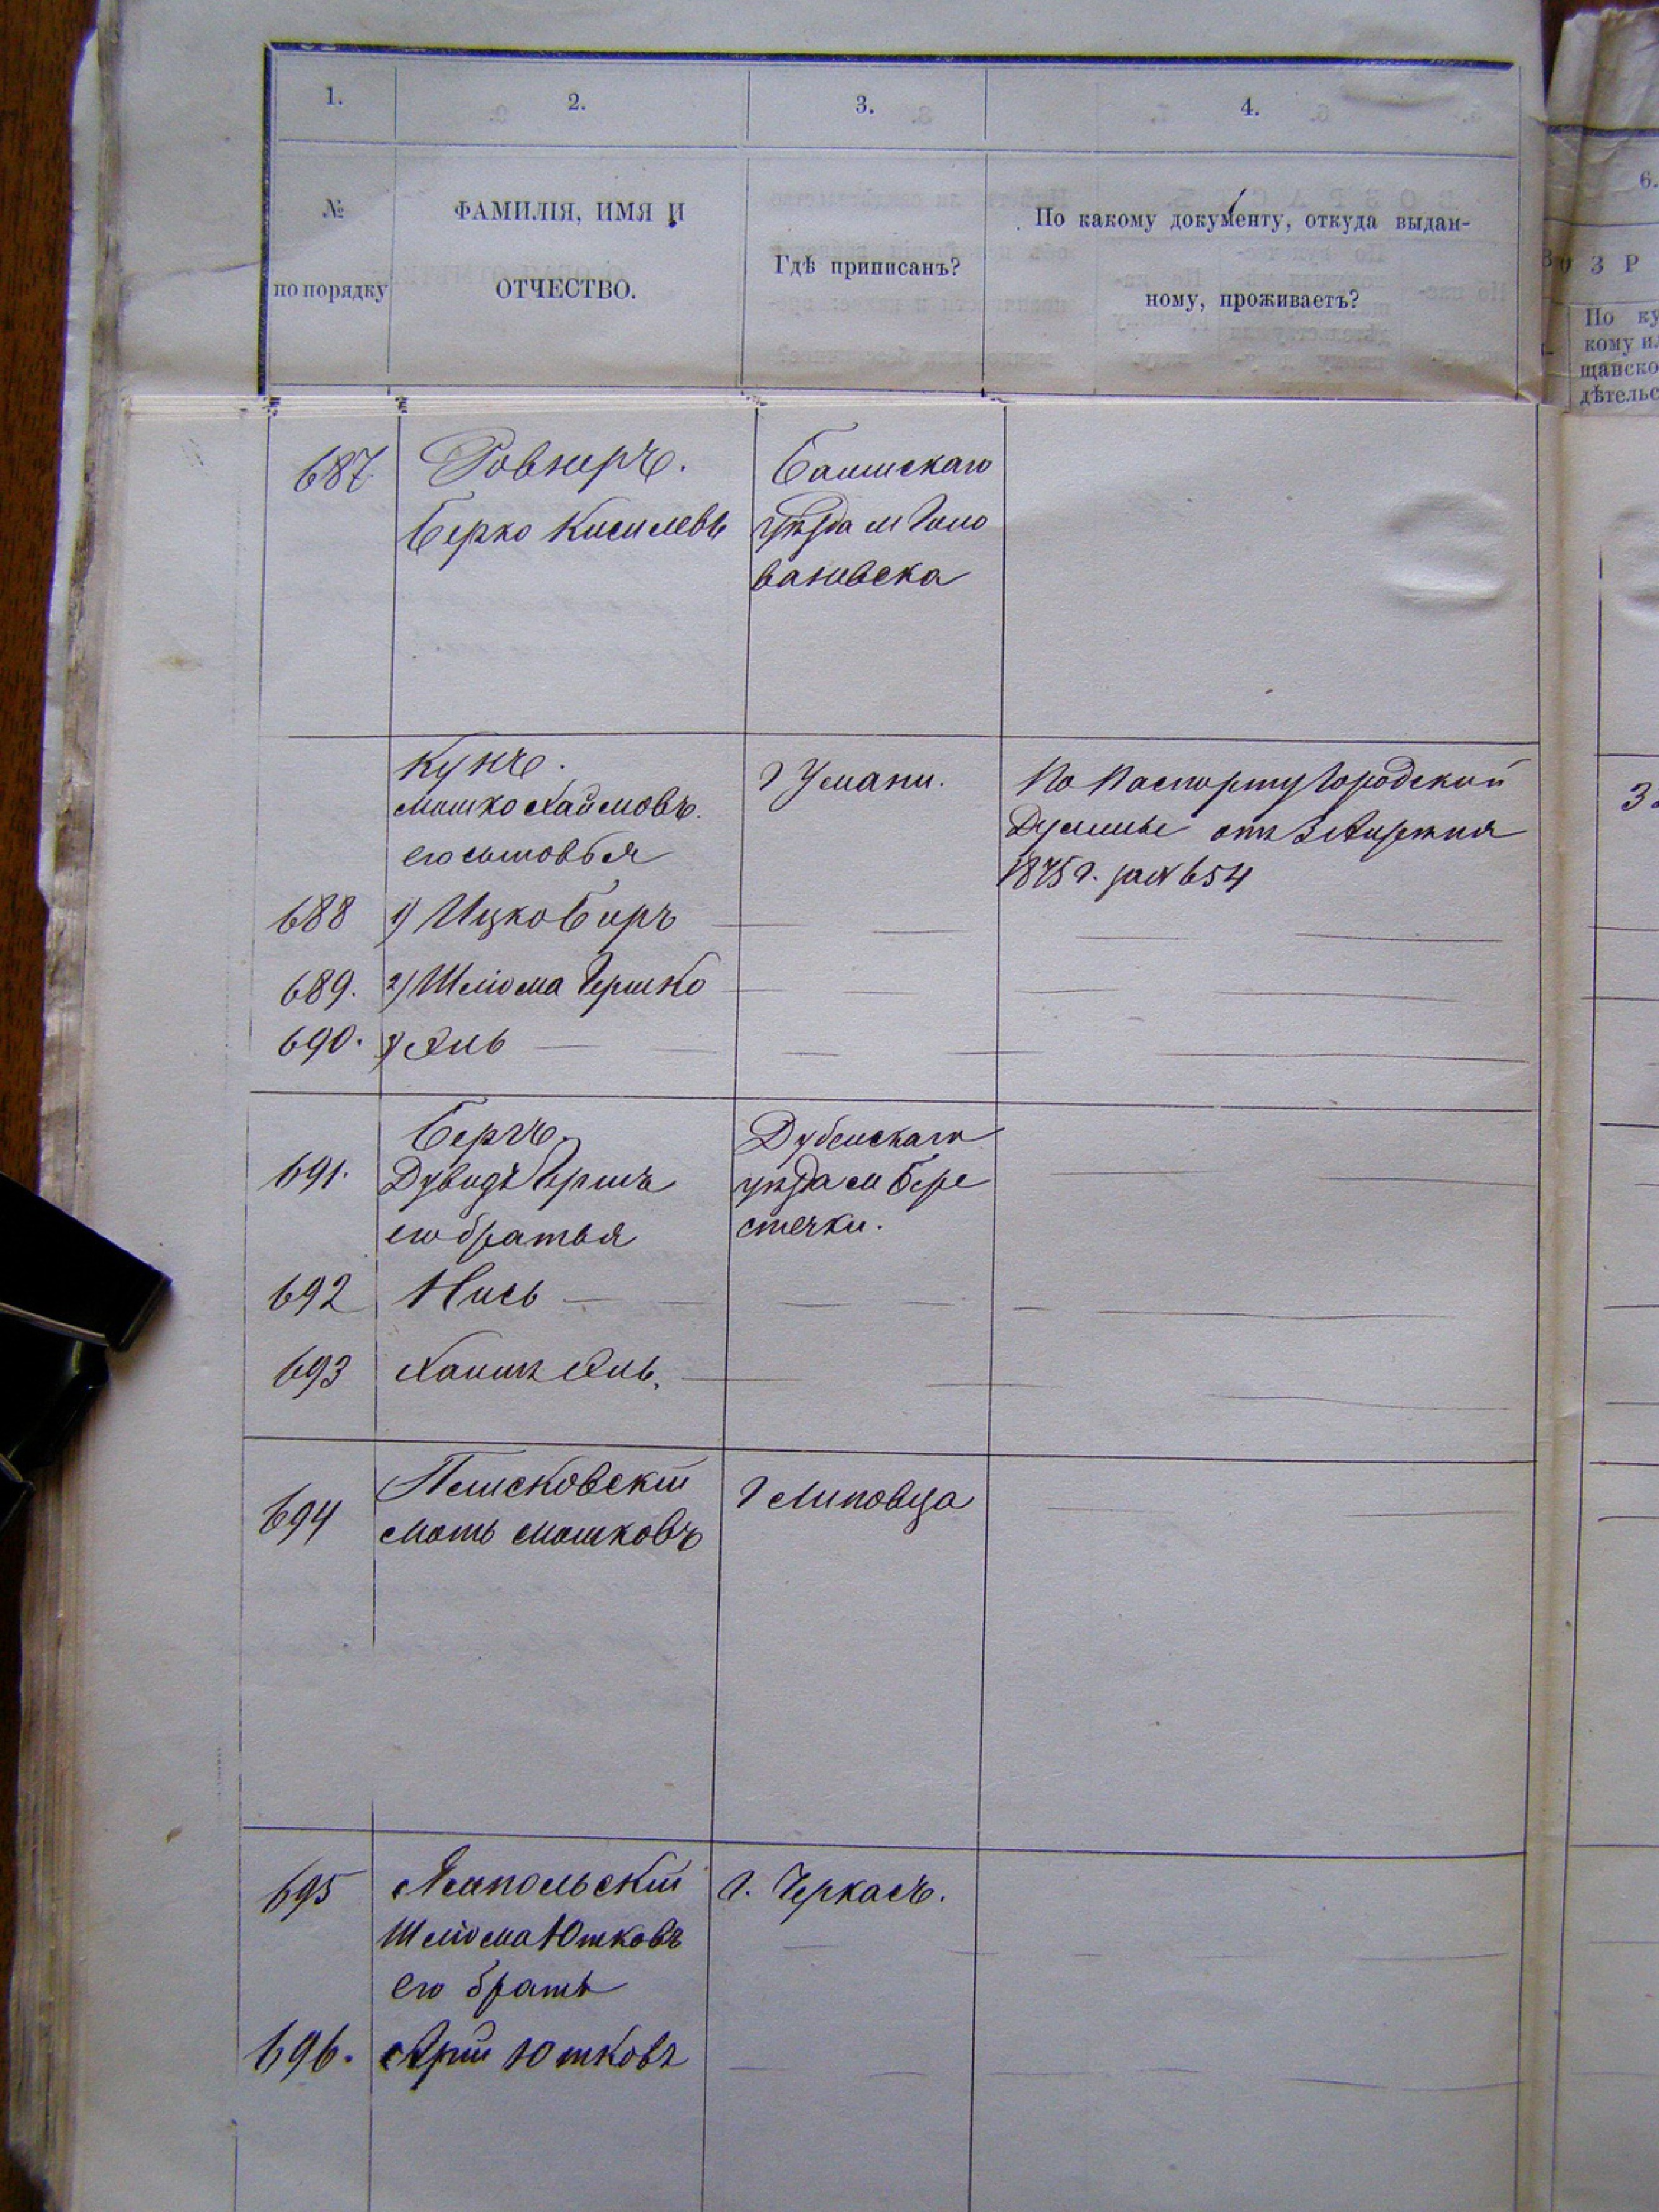 1.
2.
3.
4.
№
по порядку
ФАМИЛІЯ, ИМЯ И
ОТЧЕСТВО.
Гдѣ приписанъ?
По какому документу, откуда выдан-
ному, проживаетъ?
6.
З Р
По ку
кому ил
щанско
дѣтельс
687
Ровнеръ.
Берко Киселевъ
Балтскаго
уѣзда м Голо
ваневска
Кунъ.
Мошко Хаимовъ.
его сыновья
г Умани.
По Паспорту Городской
Думы отъ 3 Апрѣля
1875 г. за № 654
688
1) Ицко Беръ
689.
2) Шлiома Гершко
690.
3) Эль
Бергъ.
691.
Дувидъ Гершъ
его братья
Дубенскаго
уѣзда м Бере
стечки.
692
Нись
693
Хаимъ Эль.
694
Мошковъ
г Липовца
695
Ямпольскій
Шлiома Ютковъ
его братъ
г. Черкасъ.
696.
Ютковъ